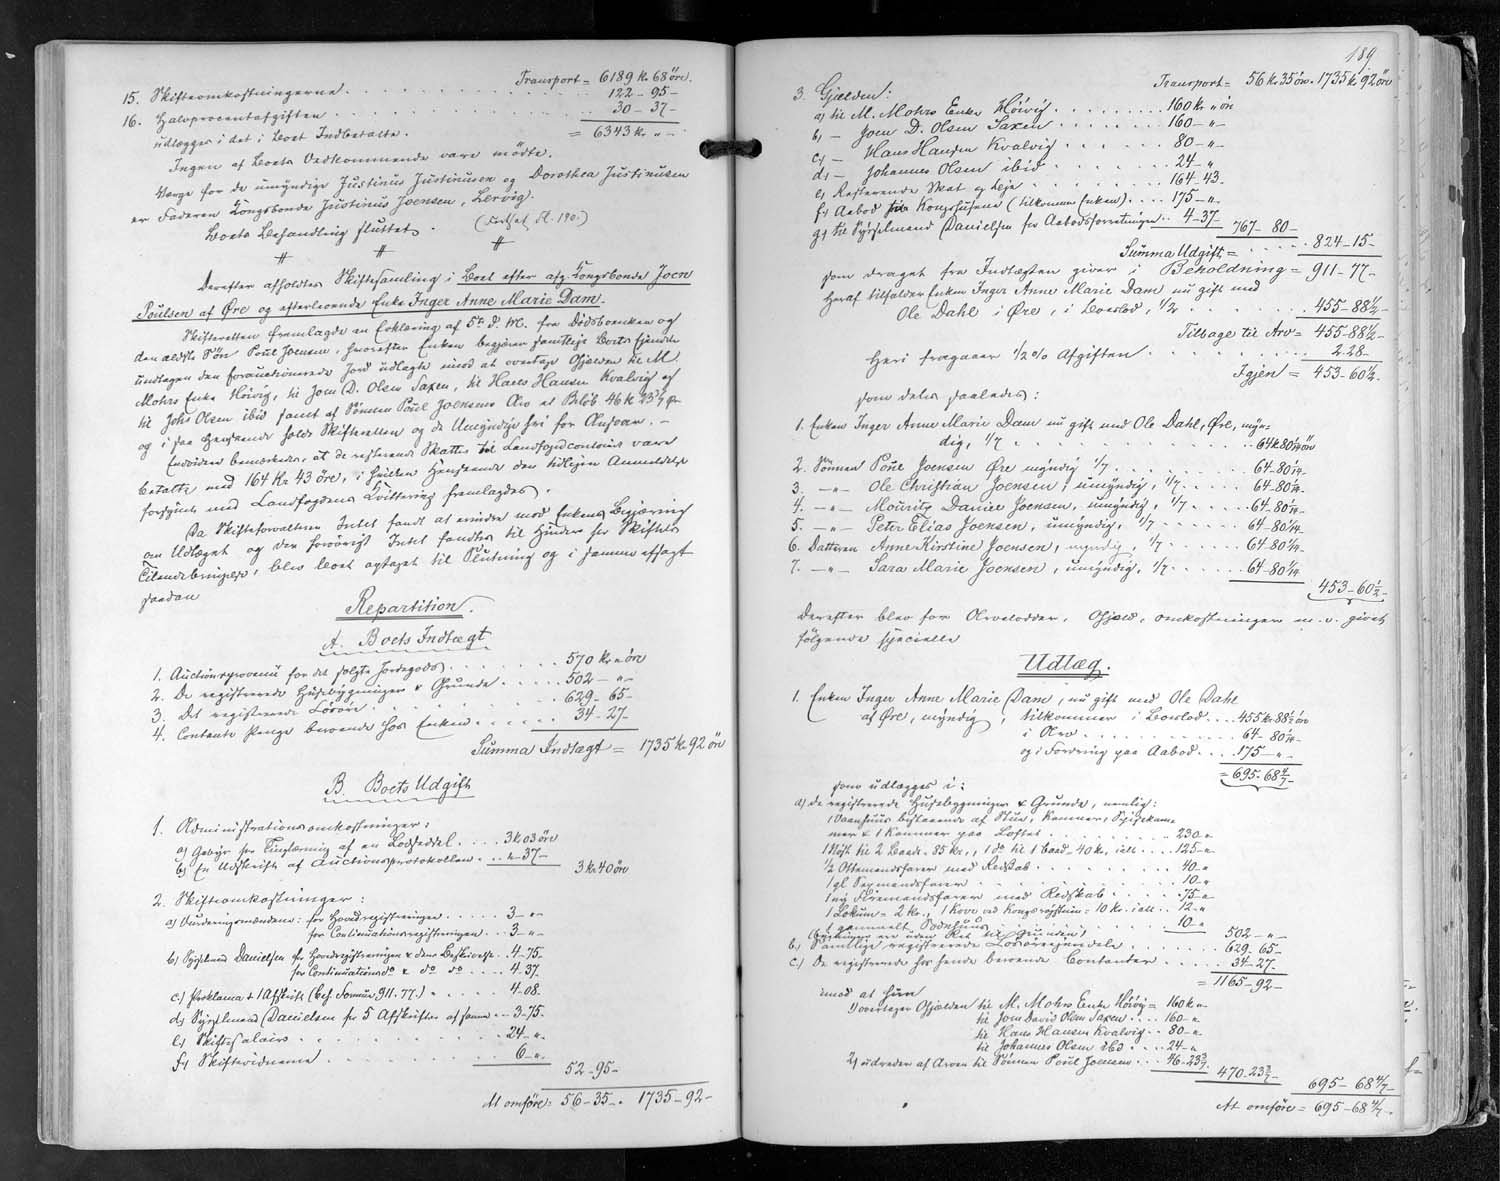 Transport = 6189 kr. 68 öre.
15. Skifteomkostningerne . . . 122 - 95 -
16. Halvprocentafgiften . . . 30 - 37 -
udlægges i det i Boet Indbetalte. = 6343 kr. „ -
Ingen af Boets Vedkommende vare mødte.
Værge for de umyndige Justinus Justinusen og Dorothea Justinusen
er Faderen Kongsbonde Justinus Joensen, Lervig.
Boets Behandling sluttet. (Fortsat fl. 190.)
# # #
Derefter afholdtes Skiftesamling i Boet efter afg. Kongsbonde Joen
Poulsen af Øre og efterlevende Enke Inger Anne Marie Dam.
Skifteretten fremlagde en Erklæring af 5te d. M. fra Dødsboenken og
den ældste Søn Poul Joensen, hvorefter Enken begjærer samtlige Boets Ejendele
undtagen den forauctionerede Jord udlagte mod at overtage Gjælden til M.
Mohrs Enke Hoivig, til Joen D. Olsen Saxen, til Hans Hansen Kvalvig og
til Johs Olsen ibid samt af Sønnen Poul Joensens Arv et Beløb 46 K 23 3/7 Øre
og i saa Henseende holde Skifteretten og de Umyndige fri for Ansvar. -
Endvidere bemærkedes, at de resterende Skatter til Landfogedcontoiret vare
betalte med 164 Kr 43 öre, i hvilken Henseende den tidligere Anmeldelse
forsynet med Landfogdens Kvittering fremlagdes.
Da Skifteforvalteren Intet fandt at erindre mod Enkens Begjæring
om Udlæget og der forøvrigt Intet fandtes til Hinder for Skiftets
Tilendebringelse, blev Boet optaget til Slutning og i samme afsagt
saadan
Repartition.
A. Boets Indtægt
1. Auctionsprovenu for det solgte Jordegods . . . 570 kr „ öre
2. De registrerede Husebygninger & Grunde . . . 502 - „ -
3. Det registrerede Løsøre . . . 629 - 65 -
4. Contante Penge beroende hos Enken . . . 34 - 27 -
Summa Indtægt = 1735 K 92 öre
B. Boets Udgift
1. Administrationsomkostninger:
a) Gebyr for Tinglæsning af en Lodseddel . . . 3 K 03 öre
b) En Udskrift af Auctionsprotokollen . . „ - 37 -
3 Kr. 40 öre
2. Skifteomkostninger:
a) Vurderingsmændene: for Hovedregistreringen . . . 3 - „ -
for Continuationsregistreringen . . 3 - „ -
b) Sysslmd Danielsen for Hovedregistreringen & dens Beskrivelse . . 4 - 75.
for Continuationsdo & do do . . . 4 - 37.
c) Proklama + 1 Afskrift (beh. Formue 911.77.) . . . 4 - 08.
d) Sysselmand Danielsen for 5 Afskrifter af samme . . 3 - 75.
e) Skiftesalair . . . 24 - „ .
f) Skiftevidnerne . . . 6 - „ .
52 - 95 -
At omføre = 56 - 35 - . 1735 - 92 -
189
Transport = 56 Kr. 35 öre . 1735 K 92 öre
3. Gjælden:
a) til M. Mohrs Enke Hoivig . . . 160 kr „ öre
b) - Joen D. Olsen Saxen . . . 160 - „ -
c) - Hans Hansen Kvalvig . . . 80 - „ -
d) - Johannes Olsen ibid . . . 24 - „
e) Resterende Skat og Leje . . . 164 - 43.
f) Aabod paa Kongshusene (tilkommer Enken) . . . 175 - „ .
g) til Sysselmand Danielsen for Aabodsforretningen . . 4 - 37
767 - 80 -
Summa Udgift = . . . 824 - 15 -
som draget fra Indtægten giver i Beholdning = 911 - 77 -
Heraf tilfalder Enken Inger Anne Marie Dam nu gift med
Ole Dahl i Øre, i Boeslod, 1/2 . . . 455 - 88 1/2 -
Tilbage til Arv = 455 - 88 1/2 -
Heri fragaaer 1/2 % Afgiften . . . 2 - 28 -
Igjen = 453 - 60 1/2 -
som deles saaledes:
1. Enken Inger Anne Marie Dam nu gift med Ole Dahl, Øre, myn-
dig, 1/7 . . . 64 K 80 1/14 ör
2. Sønnen Poul Joensen Øre myndig 1/7 . . . 64 - 80 1/14 -
3. - „ - Ole Christian Joensen, umyndig, 1/7 . . . 64 - 80 1/14 -
4. - „ - Mouritz Daniel Joensen, umyndig, 1/7 . . . 64 - 80 1/14 -
5. - „ - Peter Elias Joensen, umyndig, 1/7 . . . 64 - 80 1/14 -
6. Datteren Anne Kirstine Joensen, myndig, 1/7 . . . 64 - 80 1/14 -
7. - „ - Sara Marie Joensen, umyndig, 1/7 . . . 64 - 80 1/14
453 - 60 1/2 -
Derefter blev for Arvelodder, Gjæld, omkostninger m. v. givet
følgende specielle
Udlæg.
1. Enken Inger Anne Marie Dam, nu gift med Ole Dahl
af Øre, myndig, tilkommer i Boeslod . . . 455 Kr. 88 1/2 öre
i Arv . . . 64 - 80 1/14 -
og i Fordring paa Aabod . . . 175 - „ -
= 695 - 68 4/7 -
som udlægges i:
a) de registrerede Husebygninger & Grunde, nemlig:
1 Vaanhuus bestaaende af Stue, Kammer, Spisekam-
mer & 1 Kammer paa Loftet . . . 230 „
1 Nøst til 2 Baade - 85 kr., 1 do til 1 Baad - 40 kr., ialt . . . 125 - „
1/2 Ottemandsfarer med Redskab . . . 40 - „
1 gl Sexmandsfarer . . . 10 - „
1 ny Firemandsfarer med Redskab . . . 75 - „
1 Lokum = 2 kr., 1 Kove ved Kongsrøgstuen = 10 kr. ialt . . 12 - „
1 gammelt Sodnhuus . . . 10 - „
(Bygningerne ere uden Ret til Grunden) 502 - „ -
b) Samtlige registrerede Løsøreejendele . . . 629 - 65 -
c) De registrerede hos hende beroende Contanter . . . 34 - 27 -
= 1165 - 92 -
imod at hun
1) overtager Gjælden til M. Mohrs Enke Hoivig = 160 K „
til Joen David Olsen Saxen . . . 160 - „
til Hans Hansen Kvalvig . . 80 - „
til Johannes Olsen ibd . . . 24 - „
2) udreder af Arven til Sønnen Poul Joensen . . . 46 - 23 3/7
470 - 23 3/7 -
695 - 68 4/7 -
At omføre = 695 - 68 4/7 -